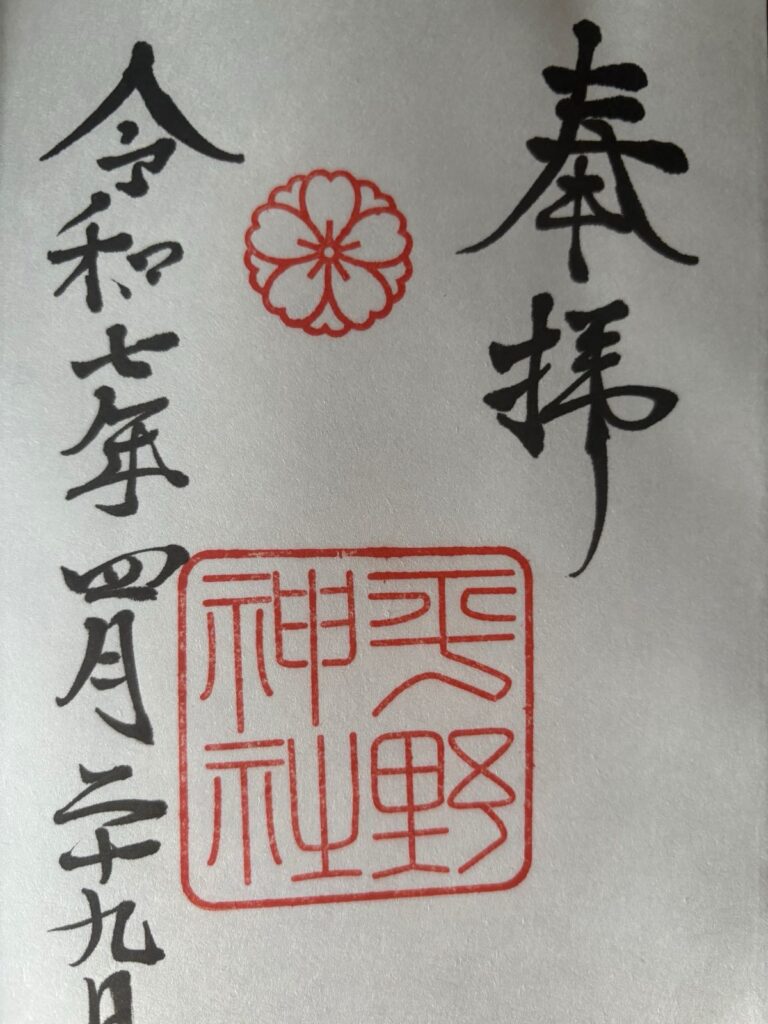 奉拝
平野
神社
令和七年四月二十九日